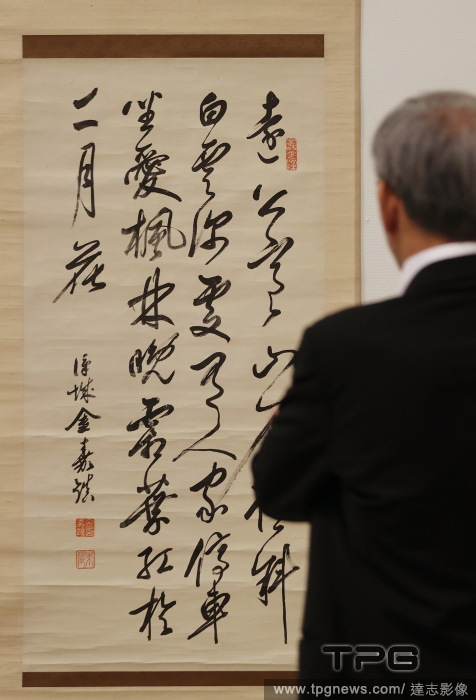 遠上寒山徑斜
白雲深處有人家停車
坐愛楓林晚霜葉紅於
二月花
城金嘉鎮
TPG
www.tpgnews.com/ 達志影像